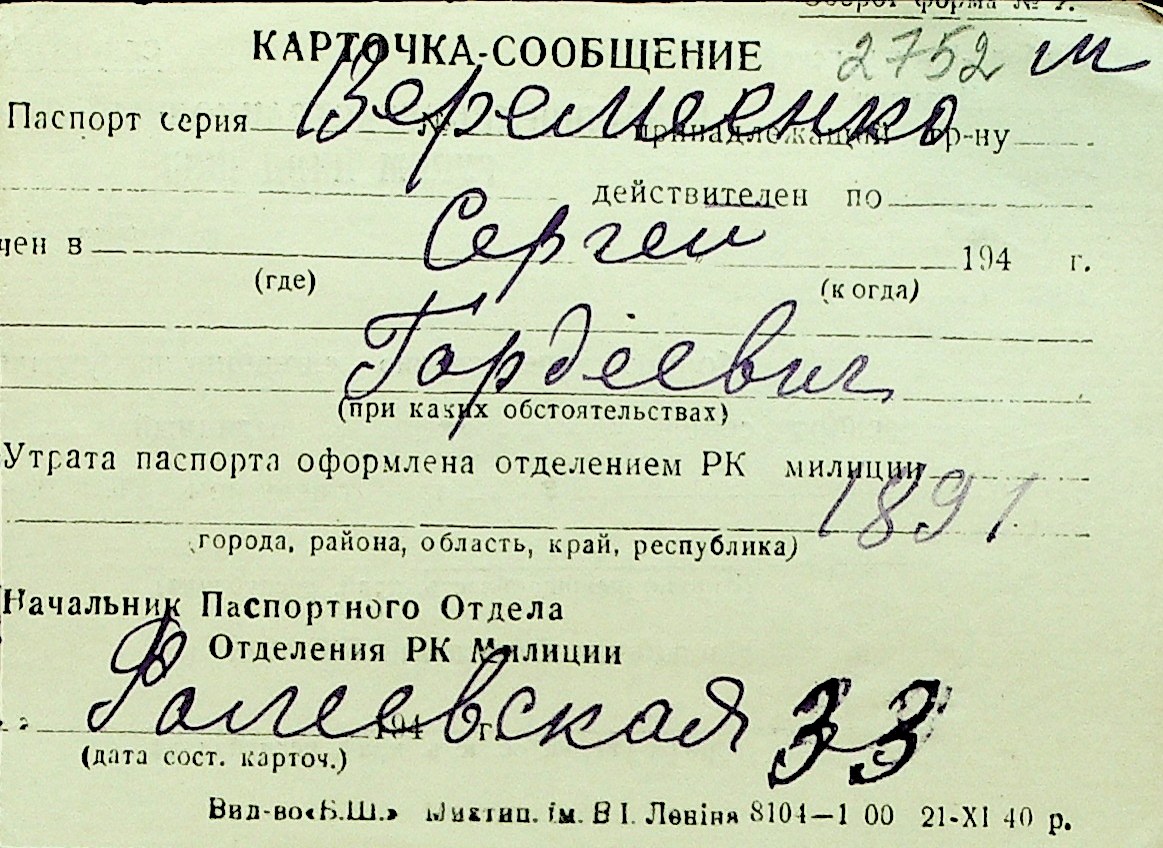 Оборот форма № 7.
КАРТОЧКА-СООБЩЕНИЕ 2752 м
Веремеенко
Паспорт серия № принадлежащий гр-ну
действителен по
Сергей
чен в 194 г.
(где) (когда)
Гордеевич
(при каких обстоятельствах)
Утрата паспорта оформлена отделением РК милиции
1891
города, района, область, край, республика)
Начальник Паспортного Отдела
Отделения РК Милиции
194 г.
33
(дата сост. карточ.)
Вид-во «Б.Ш.» ім. В І. Леніна 8104—1 00 21-XI 40 р.